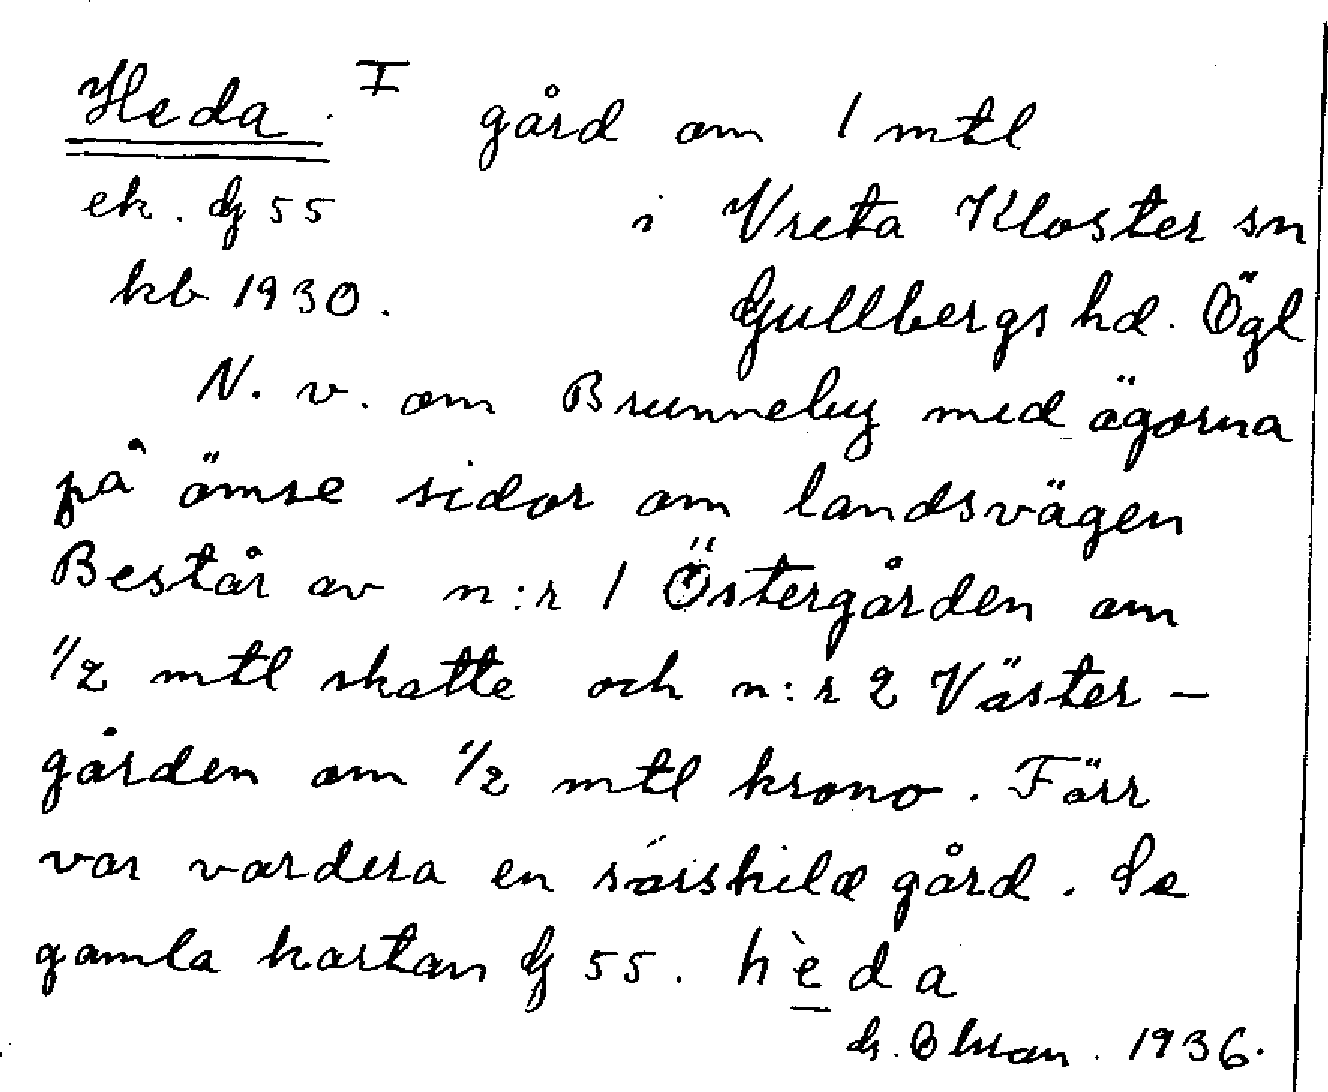 Heda. I gård om 1 mtl
ek. G 55 i Vreta Kloster sn
kb 1930. Gullbergs hd. Ögl
N. v. om Brunneby med ägorna
på ömse sidor om landsvägen
Består av n:r 1 Östergården om
1/2 mtl skatte och n:r 2 Väster-
gården om 1/2 mtl krono. Förr
var vardera en särskild gård. Se
gamla kartan G 55. hèda
G. Olsson. 1936.